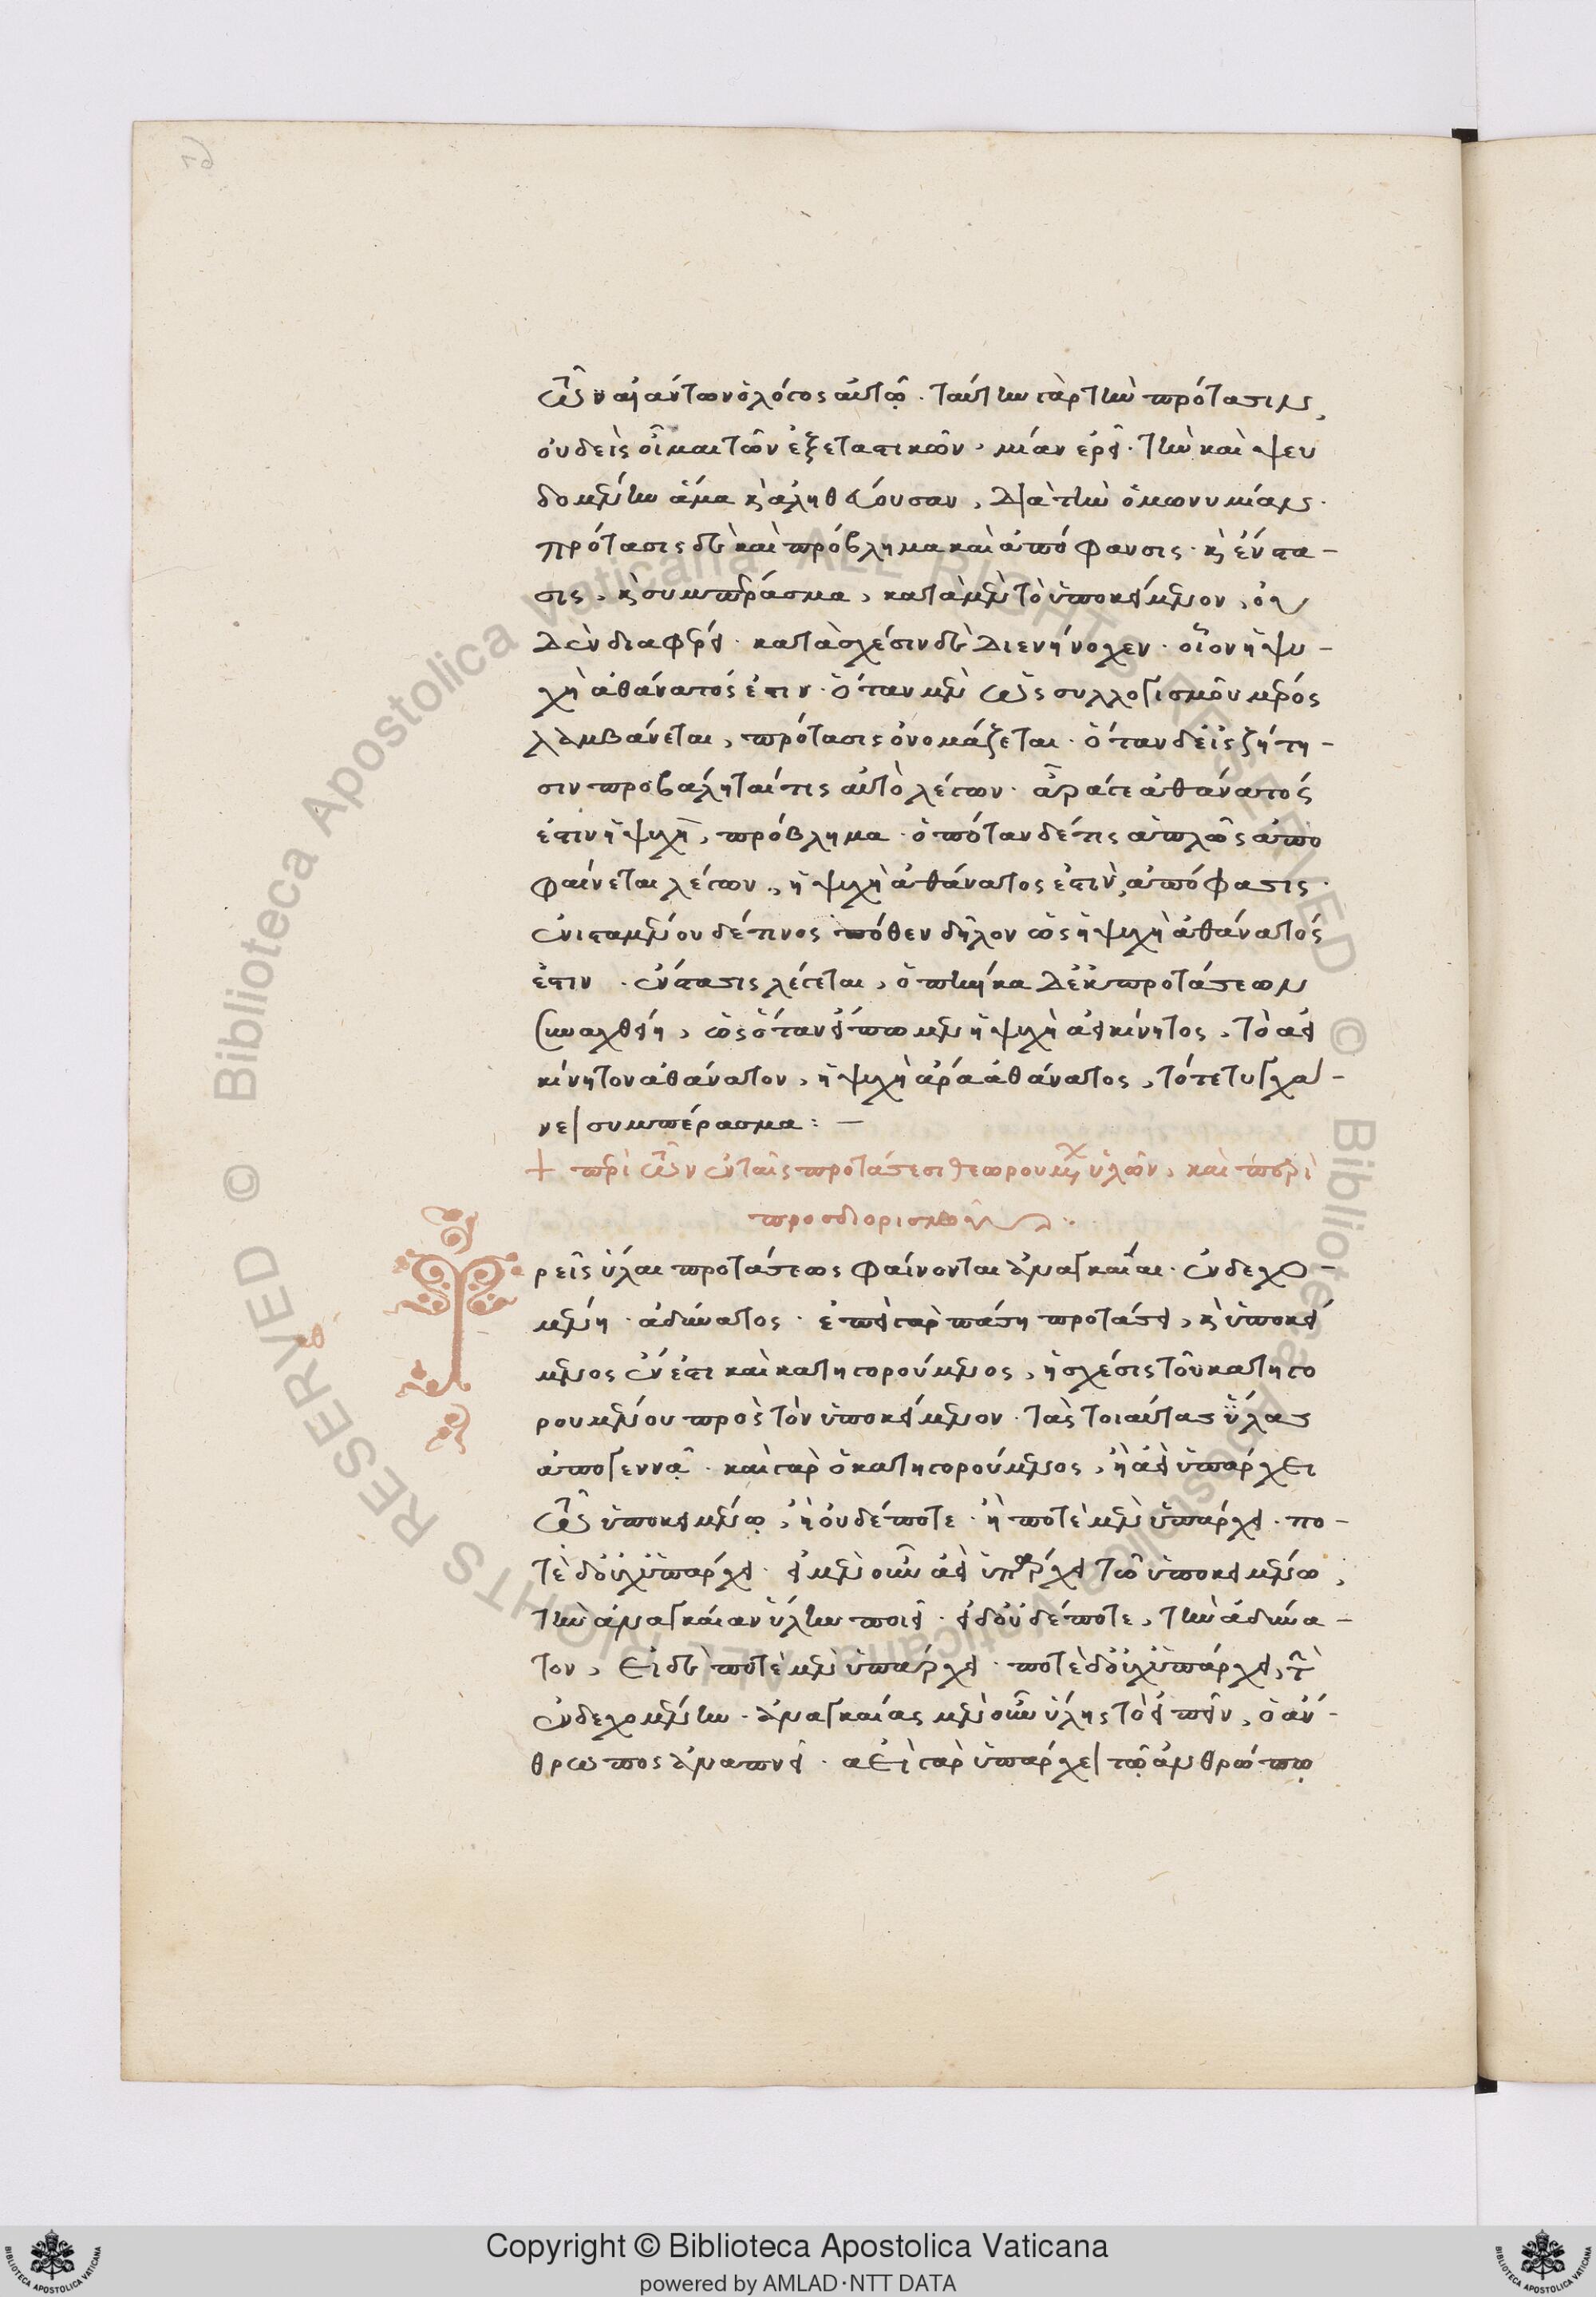 τῶν αἰάντων ὁ λόγος αὐτῷ. ταύτην γὰρ τὴν πρότασιν,
οὐδεὶς οἶμαι τῶν ἐξεταστικῶν, μίαν ἐρεῖ. τὴν καὶ ψευ
δομένην ἅμα κὶ ἀληθεύουσαν, διὰ τὴν ὁμωνυμίαν.
πρότασις δὲ καὶ πρόβλημα καὶ ἀπόφανσις. κὶ ἔνστα-
σις, κὶ συμπέρασμα, κατὰ μὲν τὸ ὑποκείμενον, οὐ
δὲν διαφέρει. κατὰ σχέσιν δὲ διενήνοχεν. οἷον ἡ ψυ-
χὴ ἀθάνατός ἐστιν. ὅταν μὲν ὡς συλλογισμοῦ μέρος
λαμβάνεται, πρότασις ὀνομάζεται. ὅταν δὲ εἰς ζήτη-
σιν προβάληταί τις αὐτὸ λέγων. ἆρά γε ἀθάνατός
ἐστιν ἡ ψυχὴ, πρόβλημα. ὁπόταν δέ τις ἁπλῶς ἀπο
φαίνεται λέγων, ἡ ψυχὴ ἀθάνατος ἐστὶν, ἀπόφασις.
ἐνισταμένου δέ τινος πόθεν δῆλον ὡς ἡ ψυχὴ ἀθάνατός
ἐστιν. ἔνστασις λέγεται, ὁπηνίκα δὲ ἐκ προτάσεων
συναχθείη, ὡς ὅταν εἴπωμεν ἡ ψυχὴ ἀεικίνητος, τὸ ἀει
κίνητον ἀθάνατον, ἡ ψυχὴ ἄρα ἀθάνατος, τότε τυγχά-
νει συμπέρασμα: –
+ περὶ τῶν ἐν ταῖς προτάσεσι θεωρουμένων ὑλῶν, καὶ περὶ
προσδιορισμῶν.
Τρεῖς ὗλαι προτάσεως φαίνονται ἀναγκαίαι. ἐνδεχο-
μένη. ἀδύνατος. ἐπεὶ γὰρ πάσῃ προτάσει, κὶ ὑποκεί
μενος ἔνεστι καὶ κατηγορούμενος, ἡ σχέσις τοῦ κατηγο
ρουμένου πρὸς τὸν ὑποκείμενον. τὰς τοιαύτας ὕλας
ἀπογεννᾷ. καὶ γὰρ ὁ κατηγορούμενος, ἢ ἀεὶ ὑπάρχει
τῷ ὑποκειμένῳ, ἢ οὐδέποτε. ἢ ποτὲ μὲν ὑπάρχει. πο-
τὲ δ' οὐχ ὑπάρχει. εἰ μὲν οὖν ἀεὶ ὑπάρχει τῷ ὑποκειμένῳ,
τὴν ἀναγκαίαν ὕλην ποιεῖ. εἰ δ' οὐδέποτε, τὴν ἀδύνα-
τον, εἰ δὲ ποτὲ μὲν ὑπάρχει. ποτὲ δ' οὐχ ὑπάρχει, τὴν
ἐνδεχομένην. ἀναγκαίας μὲν οὖν ὕλης τὸ εἰπεῖν, ὁ ἄν-
θρωπος ἀναπνεῖ. ἀεὶ γὰρ ὑπάρχει τῷ ἀνθρώπῳ
Copyright © Biblioteca Apostolica Vaticana
powered by AMLAD·NTT DATA